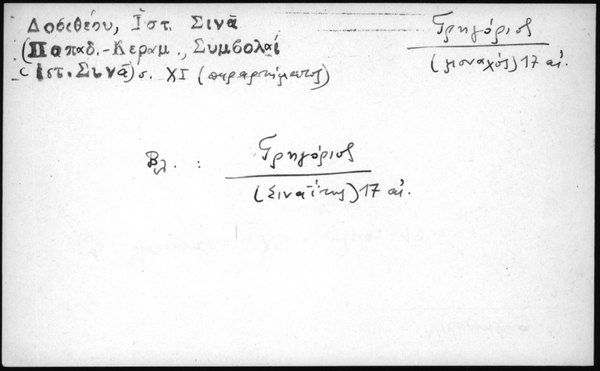 Δοσιθέου, Ἱστ. Σινᾶ
(Παπαδ.-Κεραμ., Συμβολαί
Ἱστ. Σινᾶ) σ. XI (παραρτήματος)
Γρηγόριος
(μοναχός) 17 αἰ.
Βλ. :
Γρηγόριος
(Σιναΐτης) 17 αἰ.